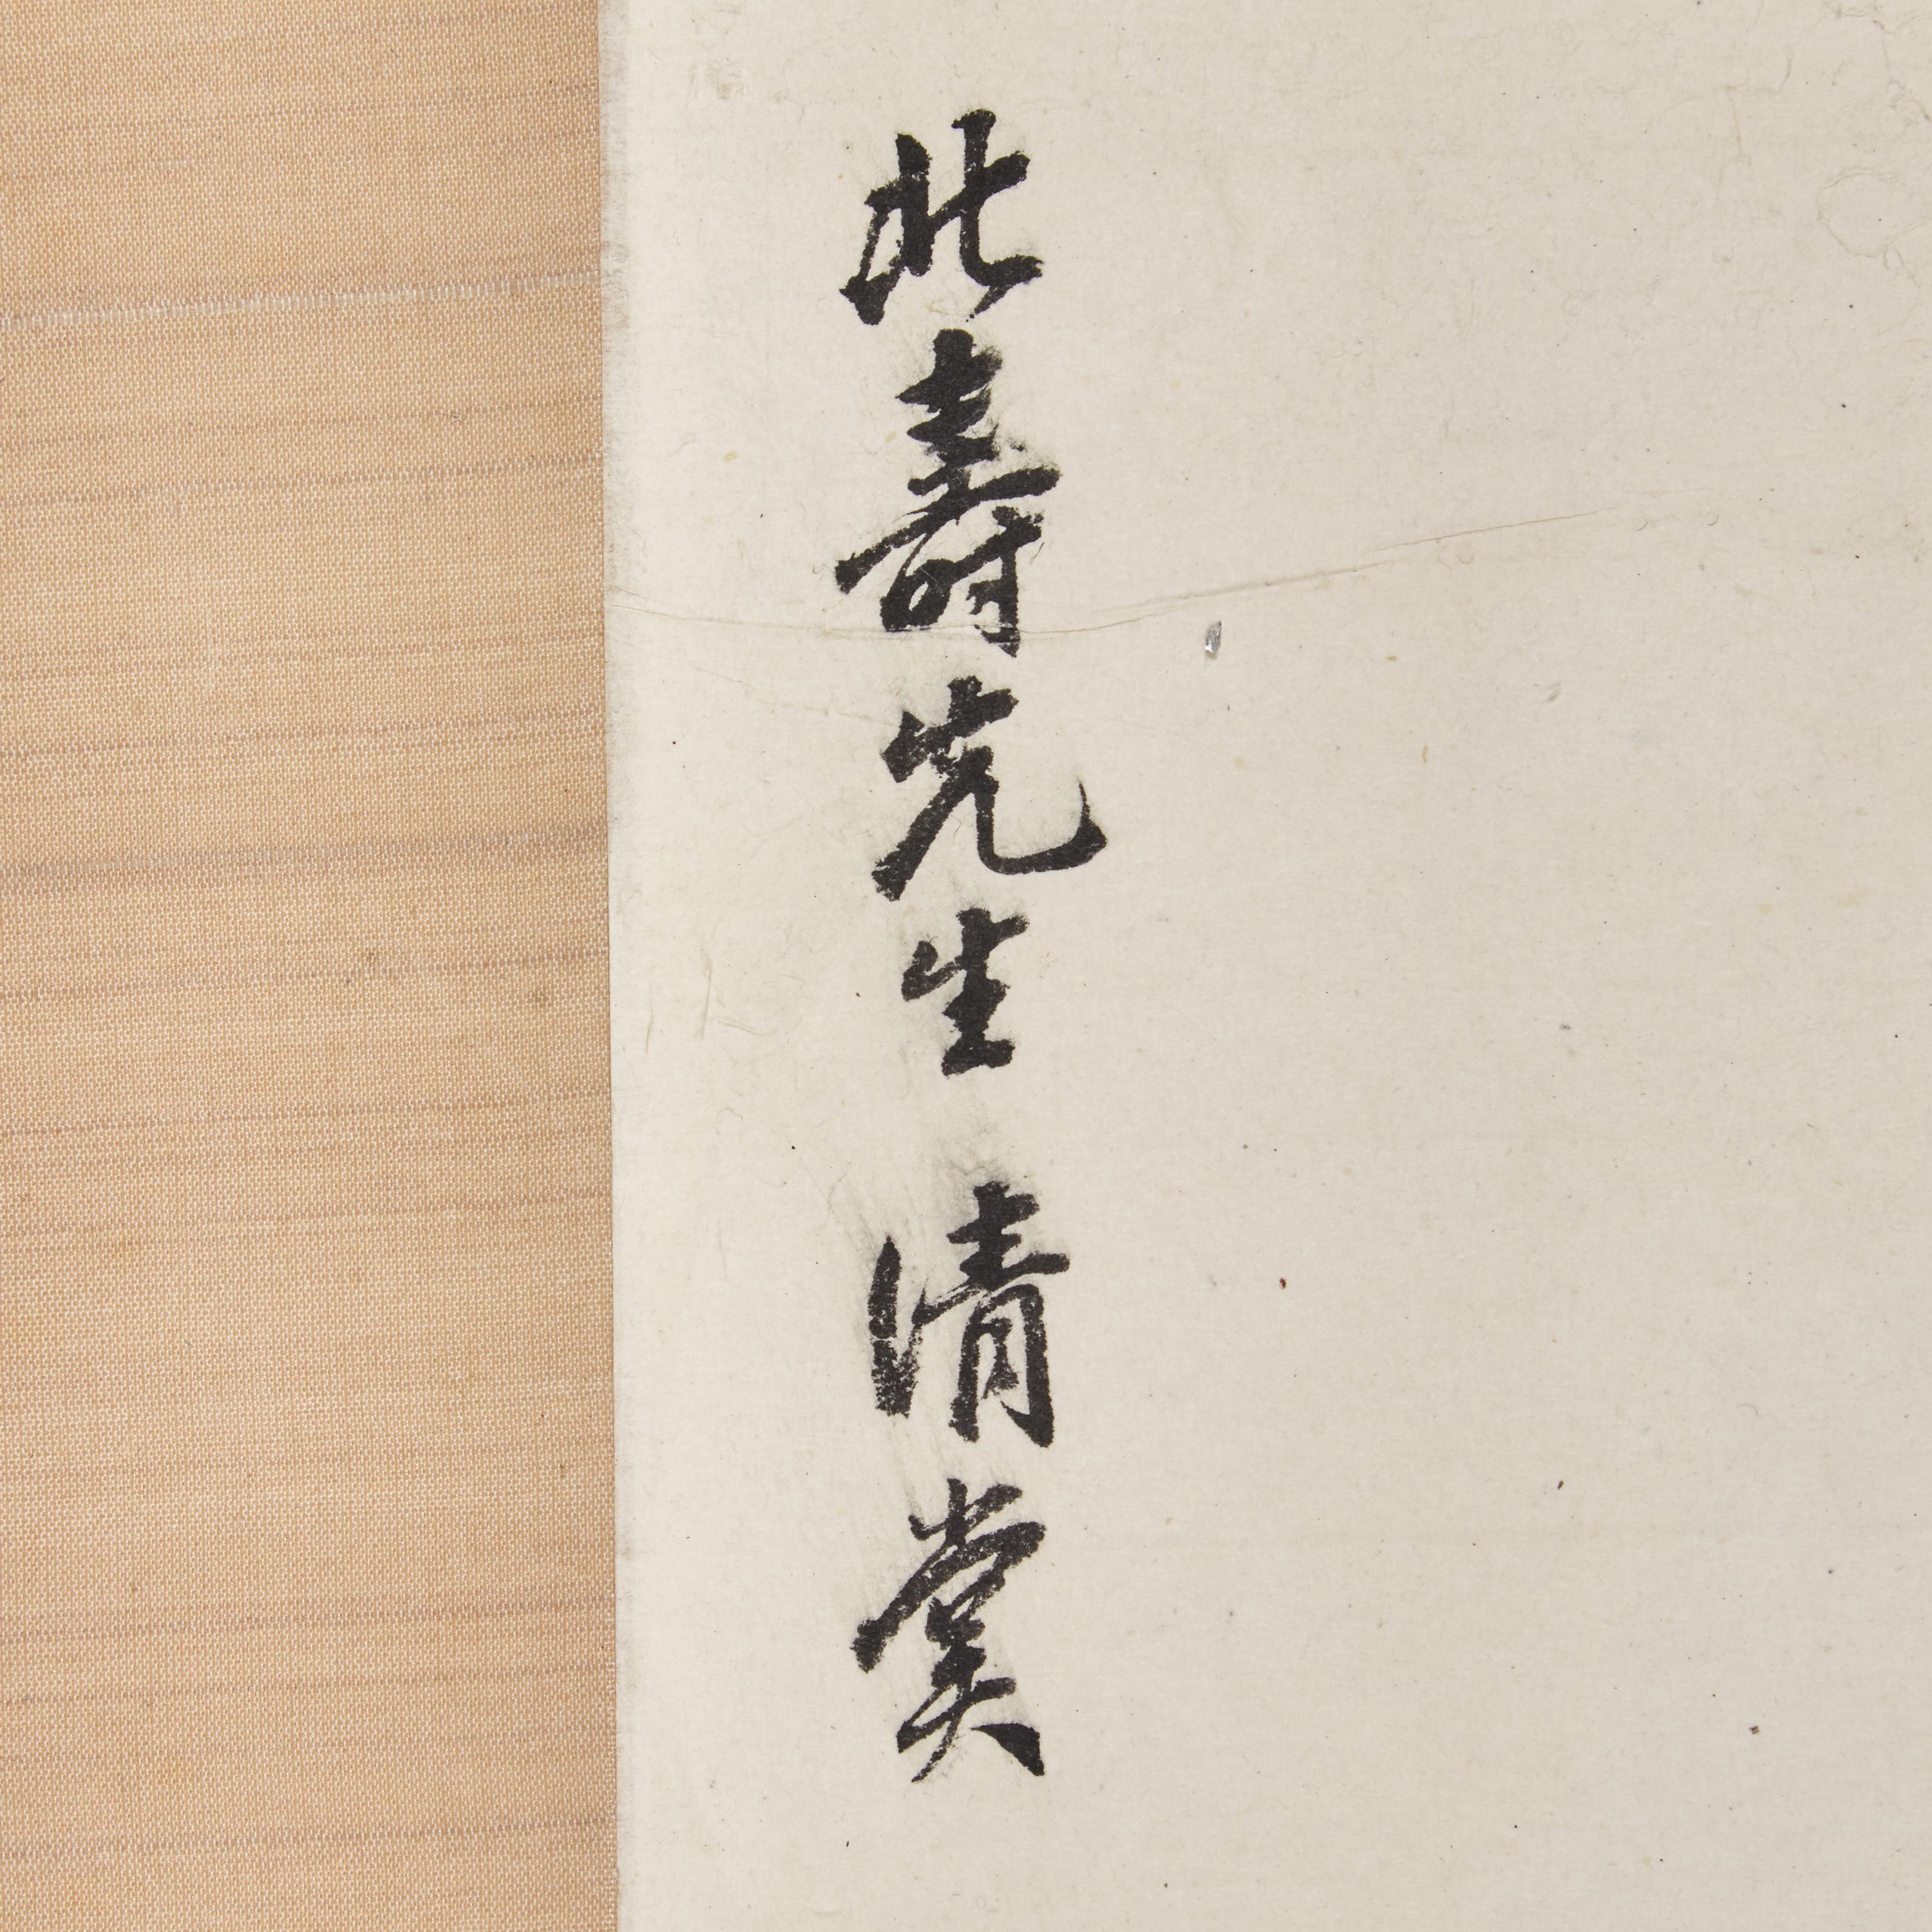 北壽先生 清賞